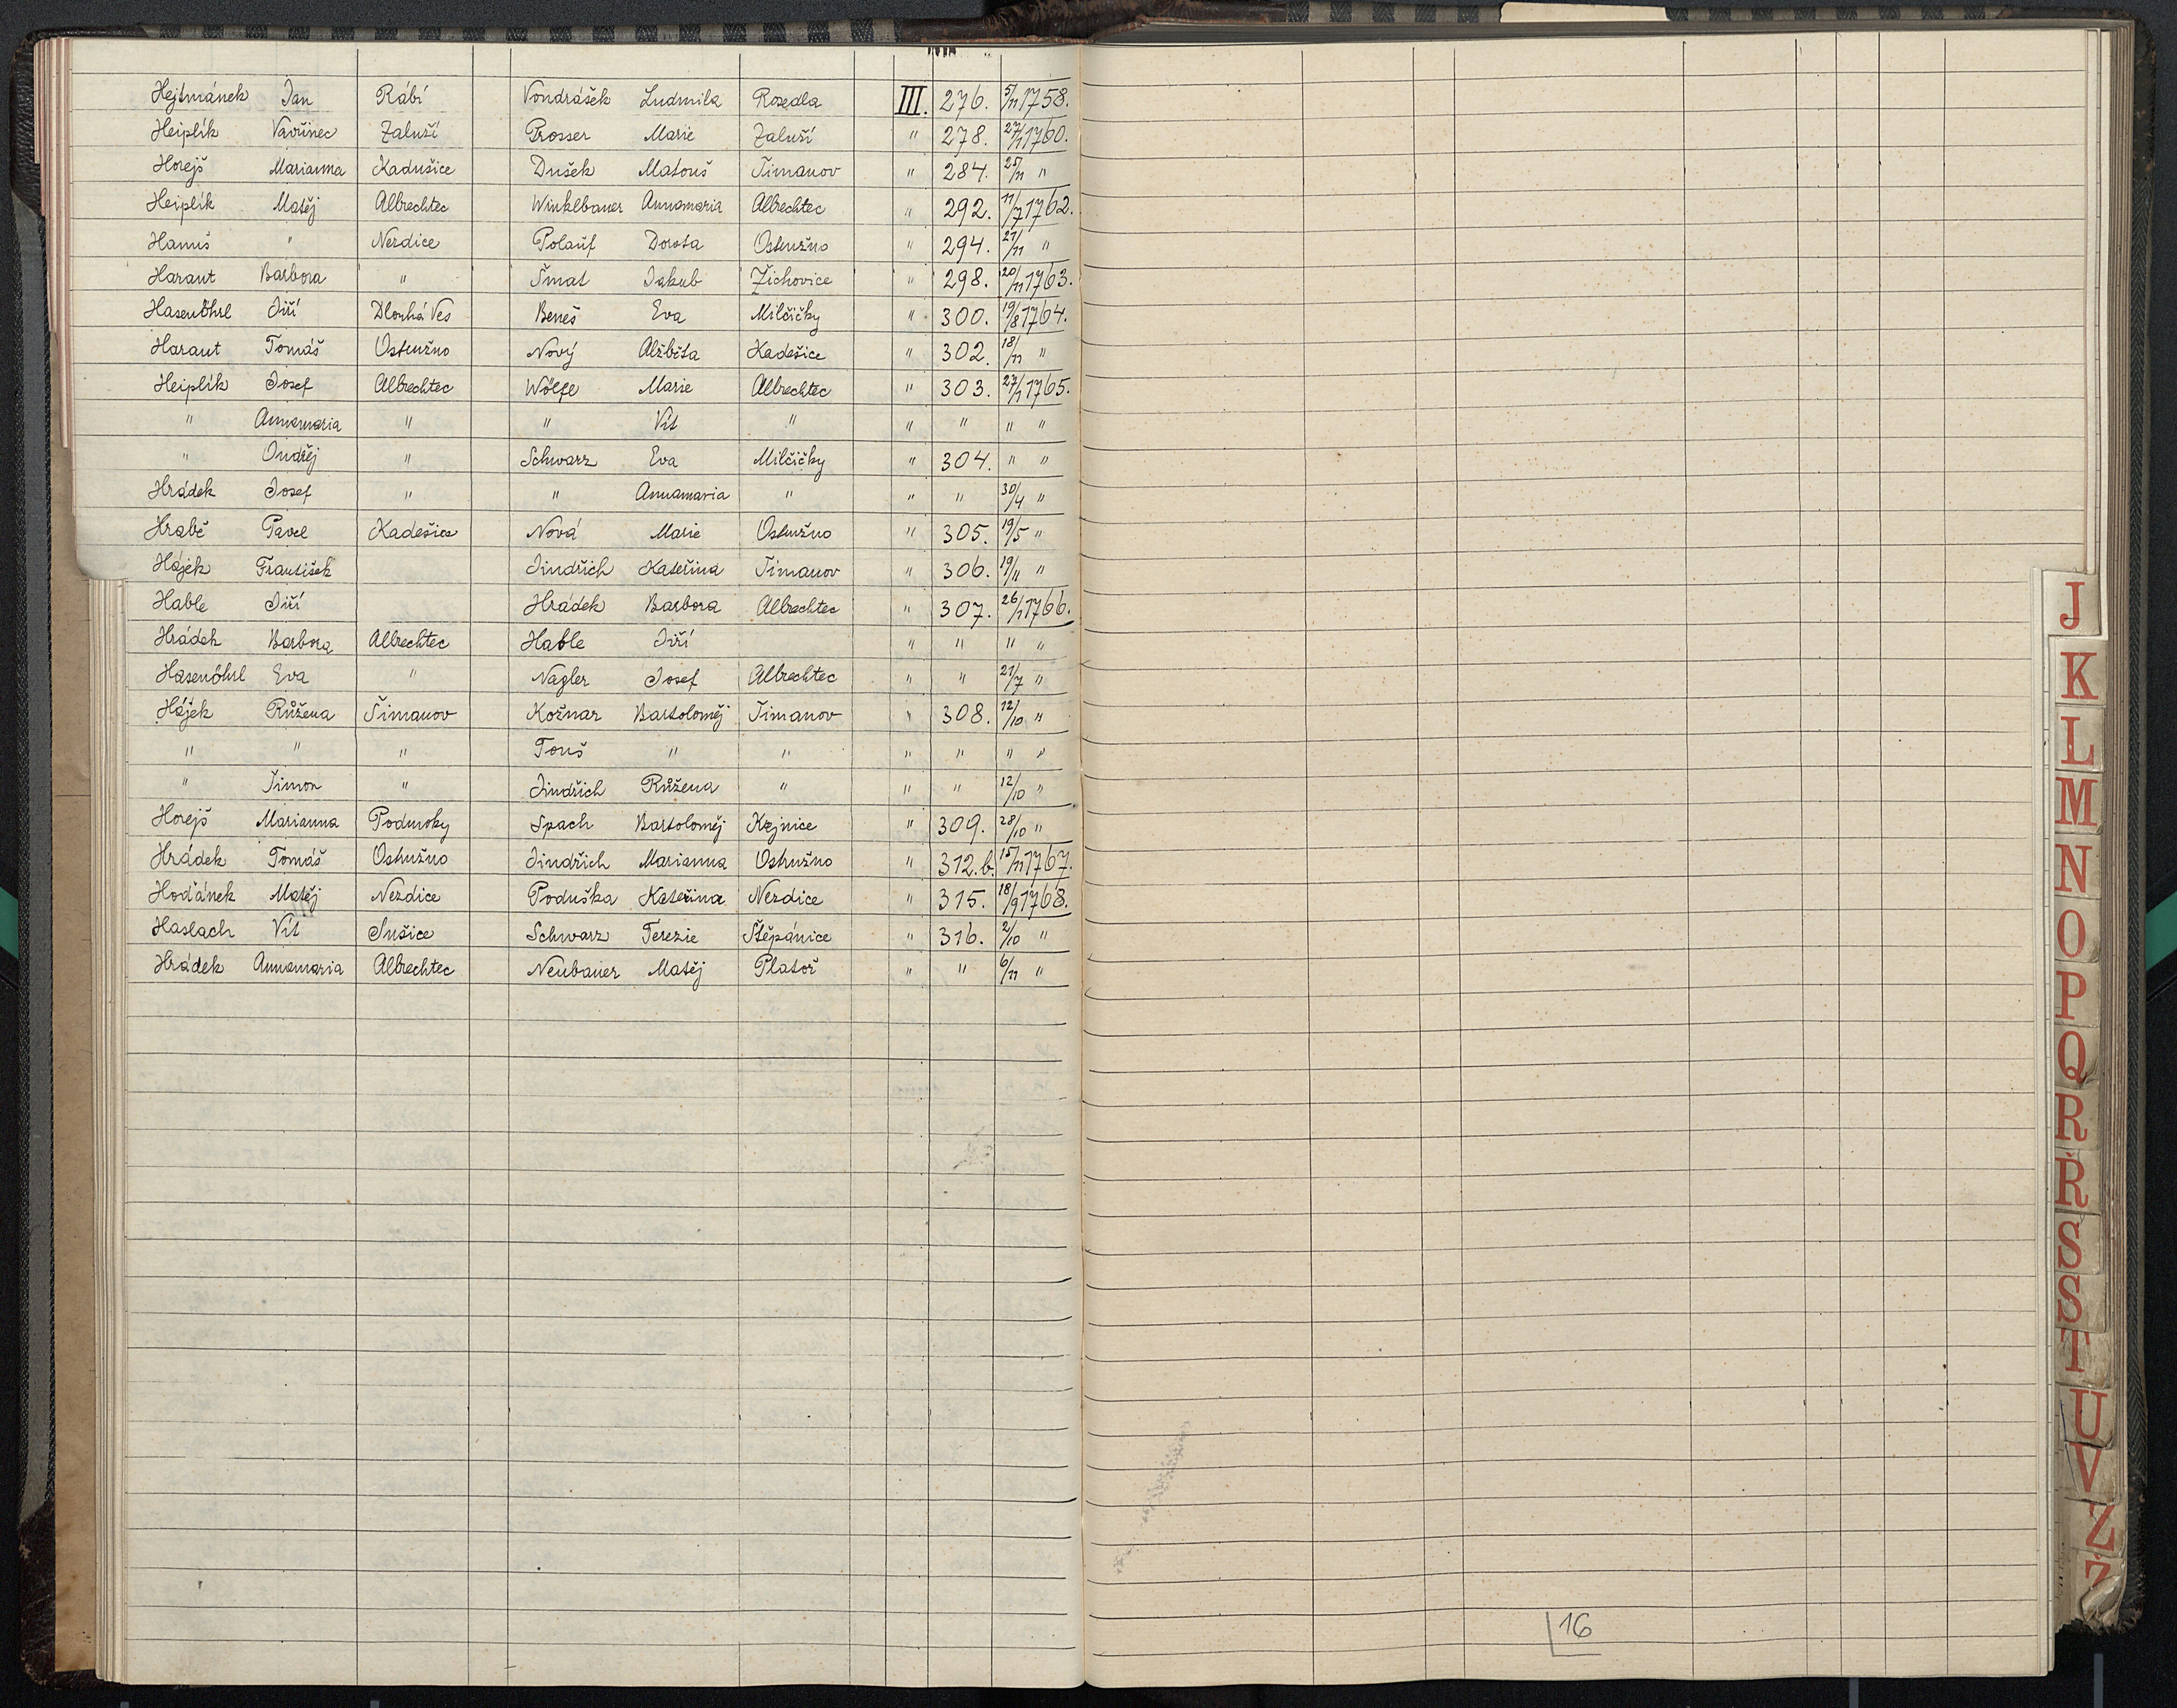 Hejtmánek Jan Rábí Vondrášek Ludmila Rozedla III. 276. 5/11 1758.
Heiplík Vavřinec Zaluží Prosser Marie Zaluží " 278. 27/1 1760.
Horejš Marianna Kadešice Dušek Matouš Šimanov " 284. 25/11 "
Heiplík Matěj Albrechtec Winklbauer Annamaria Albrechtec " 292. 11/7 1762.
Hanuš " Nezdice Polauf Dorota Ostružno " 294. 21/11 "
Haraut Barbora " Šmat Jakub Žichovice " 298. 20/11 1763.
Hasenöhrl Jiří Dlouhá Ves Beneš Eva Milčičky " 300. 19/8 1764.
Haraut Tomáš Ostružno Nový Alžběta Kadešice " 302. 18/11 "
Heiplík Josef Albrechtec Wölfe Marie Albrechtec " 303. 27/1 1765.
" Annamaria " " Vít " " " " "
" Ondřej " Schwarz Eva Milčičky " 304. " "
Hrádek Josef " " Annamaria " " " 30/4 "
Hrabě Pavel Kadešice Nová Marie Ostružno " 305. 19/5 "
Hájek František Jindřich Kateřina Šimanov " 306. 19/11 "
Hable Jiří Hrádek Barbora Albrechtec " 307. 26/1 1766.
Hrádek Barbora Albrechtec Hable Jiří " " " "
Hasenöhrl Eva " Nagler Josef Albrechtec " " 21/7 "
Hájek Růžena Šimanov Kožnar Bartoloměj Šimanov " 308. 12/10 "
" " " Touš " " " " " "
" Šimon " Jindřich Růžena " " " 12/10 "
Horejš Marianna Podmoky Spach Bartoloměj Kejnice " 309. 28/10 "
Hrádek Tomáš Ostružno Jindřich Marianna Ostružno " 312.b. 15/11 1767.
Hoďánek Matěj Nezdice Poduška Kateřina Nezdice " 315. 18/9 1768.
Haslach Vít Sušice Schwarz Terezie Štěpánice " 316. 2/10 "
Hrádek Annamaria Albrechtec Neubauer Matěj Platoř " " 6/11 "
16
J
K
L
M
N
O
P
Q
R
Ř
S
Š
T
U
V
Z
Ž